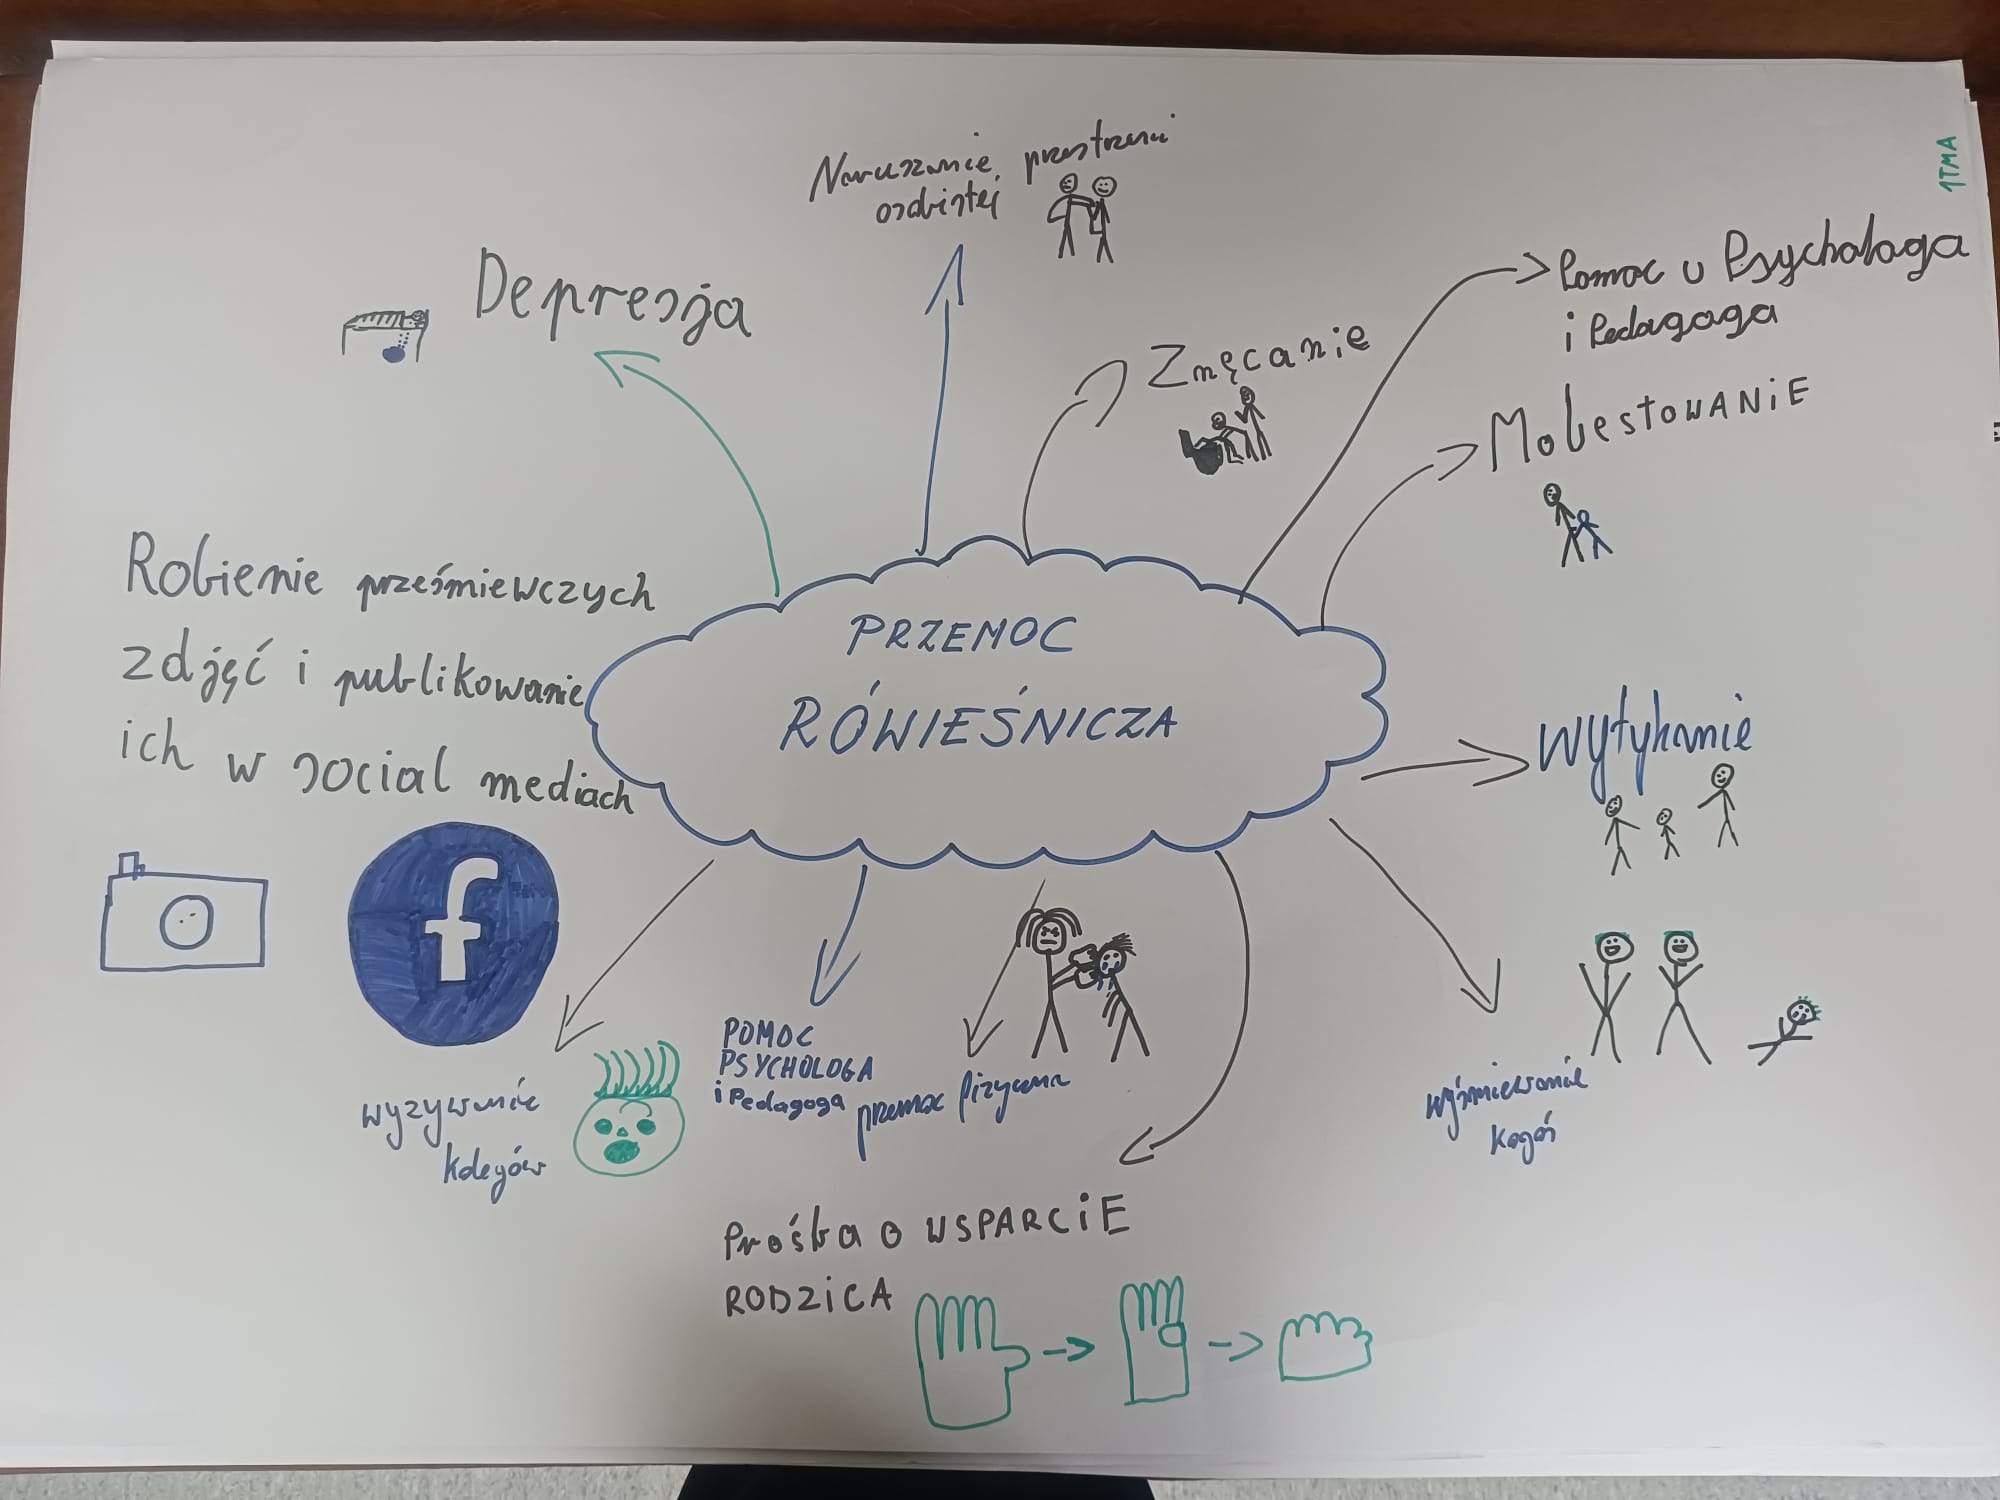 1TMA
Naruszanie przestrzeni
osobistej
Depresja
Pomoc u Psychologa
i Pedagoga
Znęcanie
MolestowANiE
Robienie prześmiewczych
zdjęć i publikowanie
ich w social mediach
PRZEMOC
RÓWIEŚNICZA
Wytykanie
f
wyzywanie
kolegów
POMOC
PSYCHOLOGA
i Pedagoga
przemoc fizyczna
wyśmiewanie
kogoś
Prośba o WSPARCiE
RODZiCA